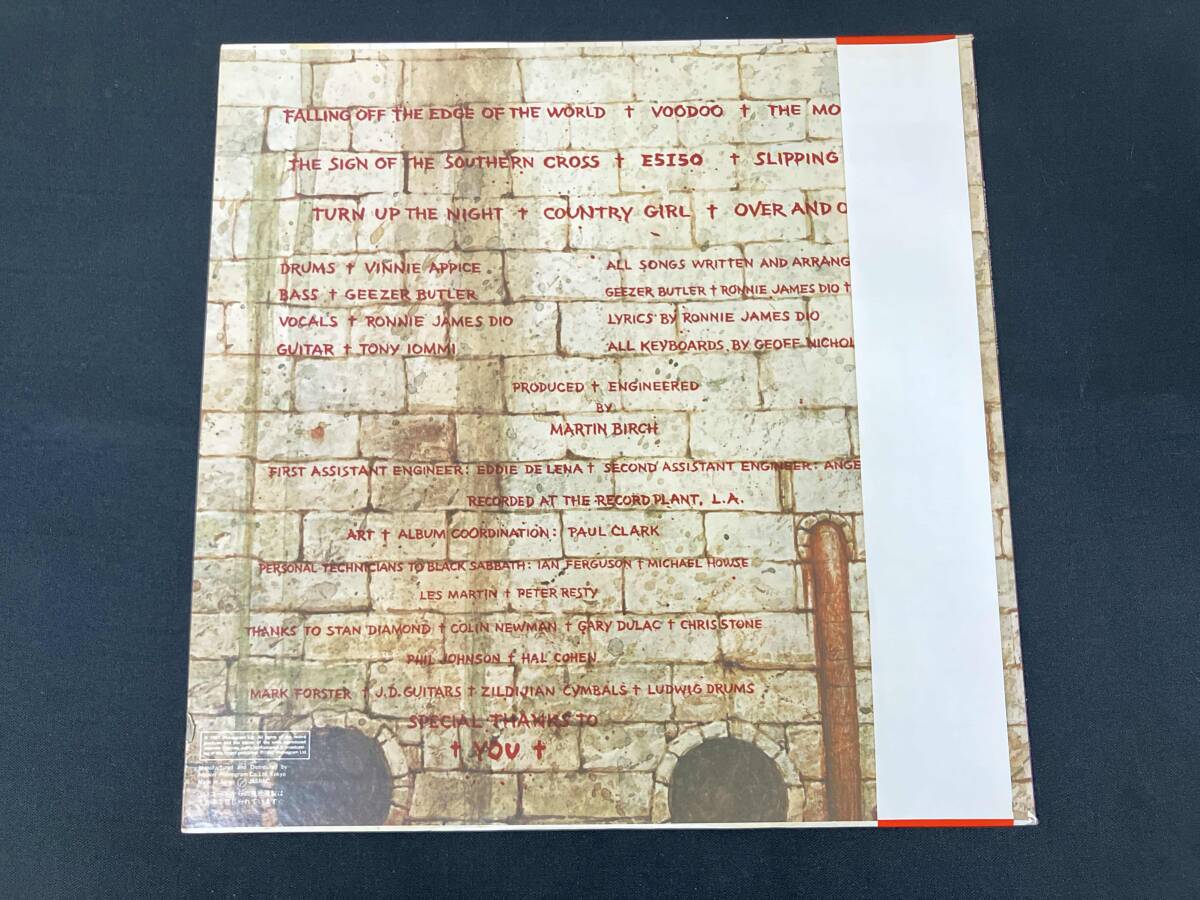 FALLING OFF THE EDGE OF THE WORLD † VOODOO † THE MO
THE SIGN OF THE SOUTHERN CROSS † E5150 † SLIPPING
TURN UP THE NIGHT † COUNTRY GIRL † OVER AND O
DRUMS † VINNIE APPICE
BASS † GEEZER BUTLER
VOCALS † RONNIE JAMES DIO
GUITAR † TONY IOMMI
ALL SONGS WRITTEN AND ARRANG
GEEZER BUTLER † RONNIE JAMES DIO †
LYRICS BY RONNIE JAMES DIO
ALL KEYBOARDS BY GEOFF NICHOL
PRODUCED † ENGINEERED
BY
MARTIN BIRCH
FIRST ASSISTANT ENGINEER: EDDIE DE LENA † SECOND ASSISTANT ENGINEER: ANGE
RECORDED AT THE RECORD PLANT, L.A.
ART † ALBUM COORDINATION: PAUL CLARK
PERSONAL TECHNICIANS TO BLACK SABBATH: IAN FERGUSON † MICHAEL HOWSE
LES MARTIN † PETER RESTY
THANKS TO STAN DIAMOND † COLIN NEWMAN † GARY DULAC † CHRIS STONE
PHIL JOHNSON † HAL COHEN
MARK FORSTER † J.D. GUITARS † ZILDIJIAN CYMBALS † LUDWIG DRUMS
SPECIAL THANKS TO
† YOU †
Manufactured and Distributed by
Nippon Phonogram Co., Ltd. Tokyo
Made in Japan